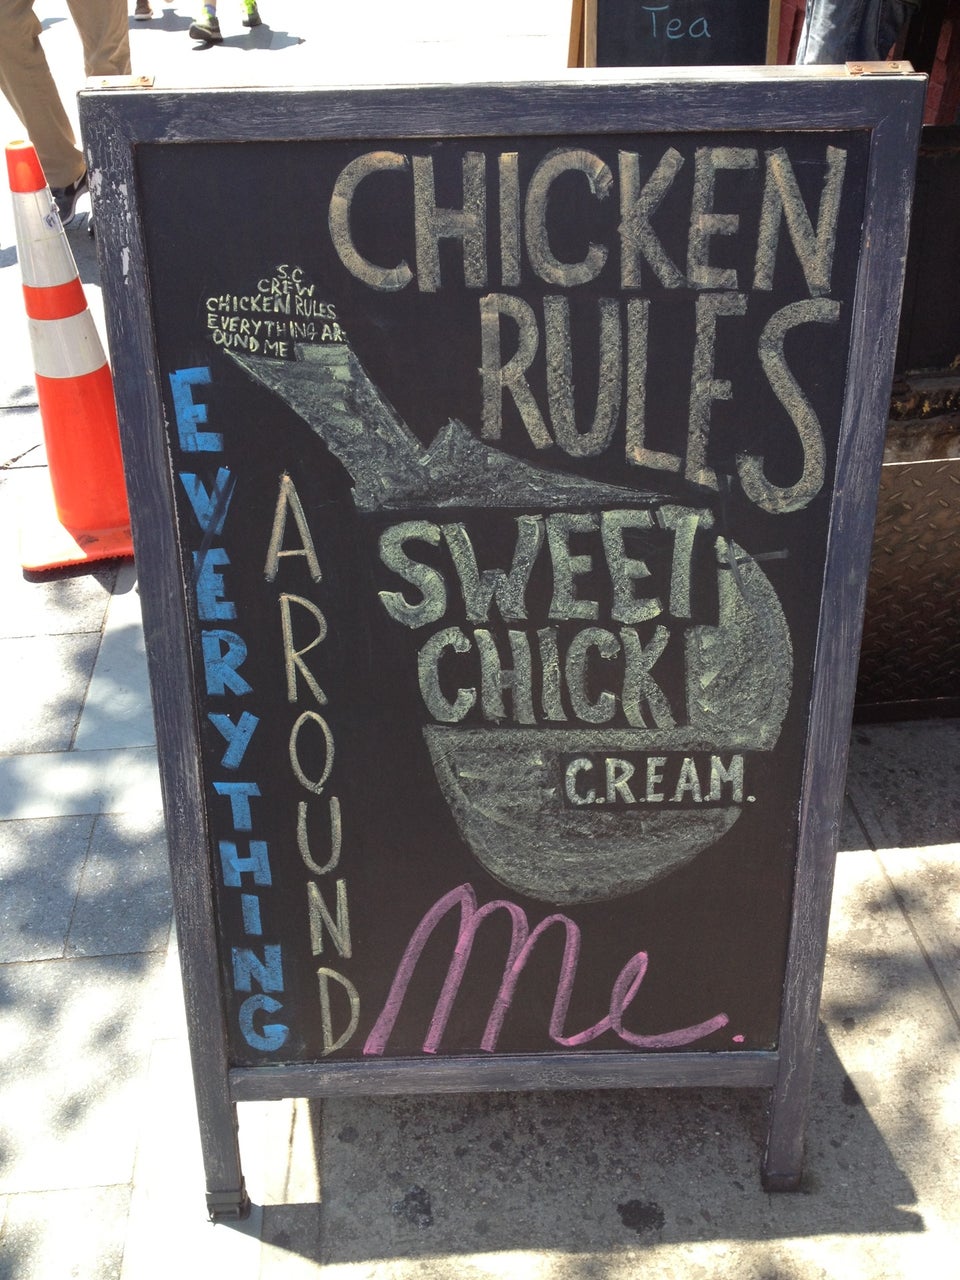 Tea
CHICKEN
RULES
S.C
CREW
CHICKEN RULES
EVERYTHING AR
OUND ME
SWEET
CHICK
C.R.E.A.M.
EVERYTHING
AROUND
me.